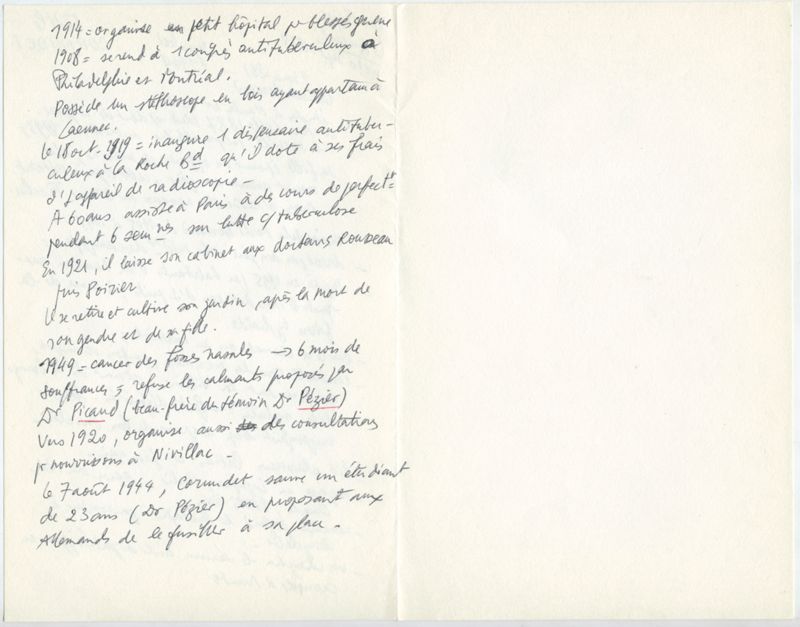 1914 = organise un petit hôpital pr blessés guerre
1908 = se rend à 1 congrès antituberculeux à
Philadelphie et Montréal.
Possède un stéthoscope en bois ayant appartenu à
Laennec.
Le 18 oct. 1919 = inaugure 1 dispensaire antituber-
culeux à la Roche Bd qu'il dote à ses frais
d'1 appareil de radioscopie -
A 60 ans assiste à Paris à des cours de perfectt
pendant 6 semnes sur lutte c/ tuberculose
En 1921, il laisse son cabinet aux docteurs Rousseau
puis Poirier
Il se retire et cultive son jardin, après la mort de
son gendre et de sa fille.
1949 = cancer des fosses nasales → 6 mois de
souffrances ; refuse les calmants proposés par
Dr Picaud (beau-frère du témoin Dr Pézier)
Vers 1920, organise aussi des consultations
pr nourrissons à Nivillac -
Le 7 août 1944, Cornudet sauve un étudiant
de 23 ans (Dr Pézier) en proposant aux
Allemands de le fusiller à sa place.